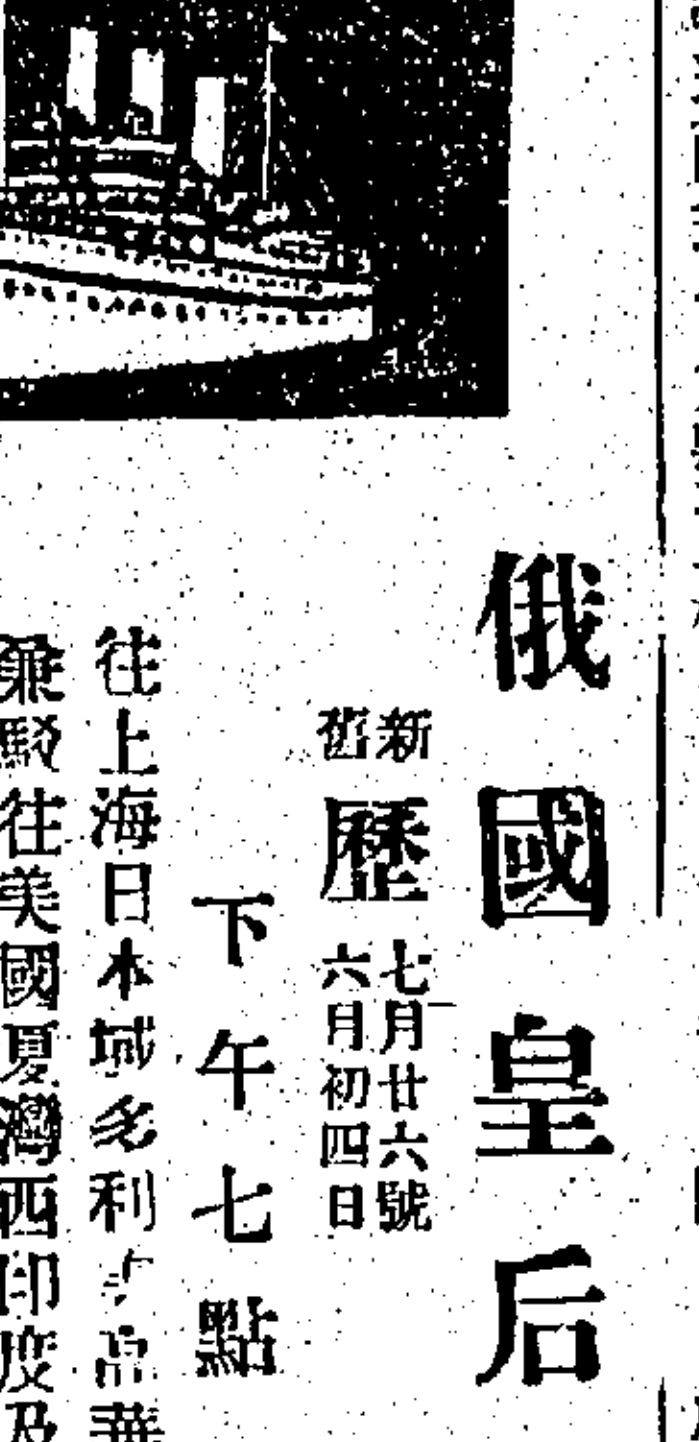 俄國皇后
新舊歷
七月廿六號
六月初四日
下午七點
往上海日本域多利
兼駁往美國夏灣西印度及